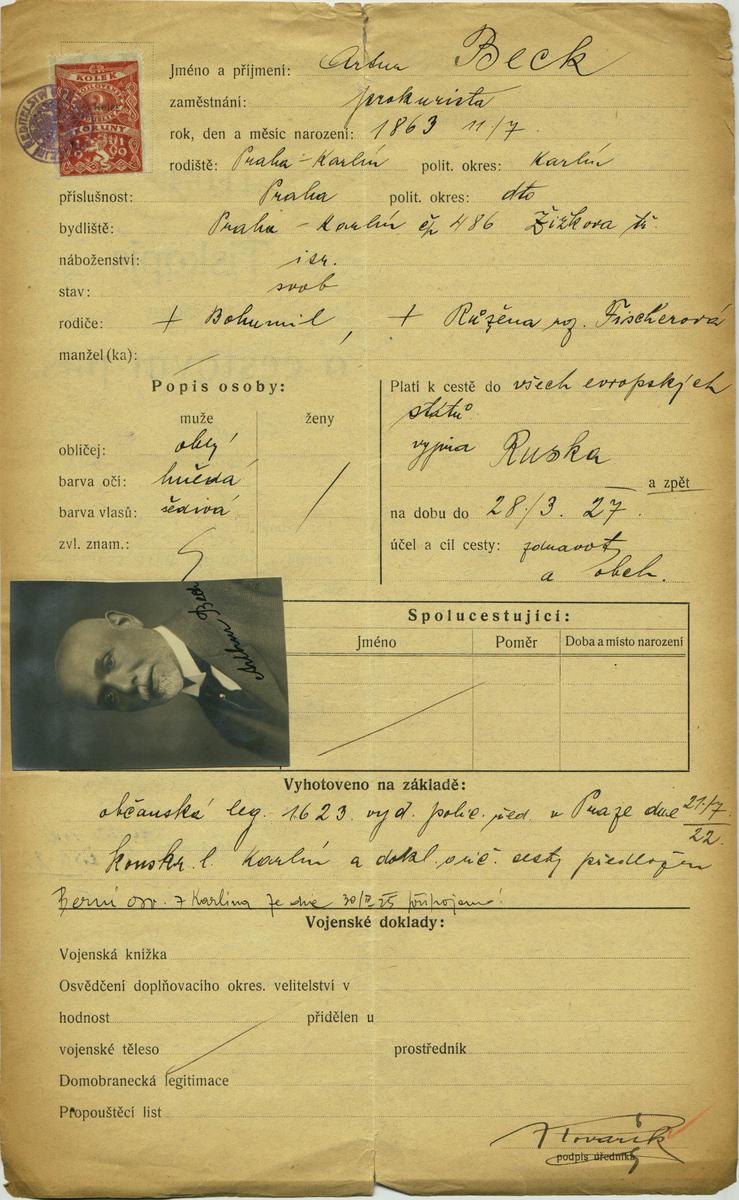 KOLEK
KORUNY
1919
Jméno a příjmení: Artur Beck
zaměstnání: prokurista
rok, den a měsíc narození: 1863 11/7
rodiště: Praha-Karlín polit. okres: Karlín
příslušnost: Praha polit. okres: dto
bydliště: Praha-Karlín čp 486 Žižkova tř.
náboženství: isr.
stav: svob
rodiče: + Bohumil, + Růžena roz. Fischerová
manžel (ka):
Popis osoby:
muže ženy
obličej: oblý
barva očí: hnědá
barva vlasů: šedivá
zvl. znam.:
Platí k cestě do všech evropských
států
vyjma Ruska
a zpět
na dobu do 28/3. 27.
účel a cíl cesty: zdravot
a obch.
Artur Beck
Spolucestující:
Jméno Poměr Doba a místo narození
Vyhotoveno na základě:
občanská leg. 1623 vyd. polic. řed. v Praze dne 21./7. 22.
konskr. l. Karlín a dokl. cesty předložen
Berní Karlína ze dne 30/ 25 připojeno!
Vojenské doklady:
Vojenská knížka
Osvědčení doplňovacího okres. velitelství v
hodnost přidělen u
vojenské těleso prostředník
Domobranecká legitimace
Propouštěcí list
Kovařík
podpis úředníka